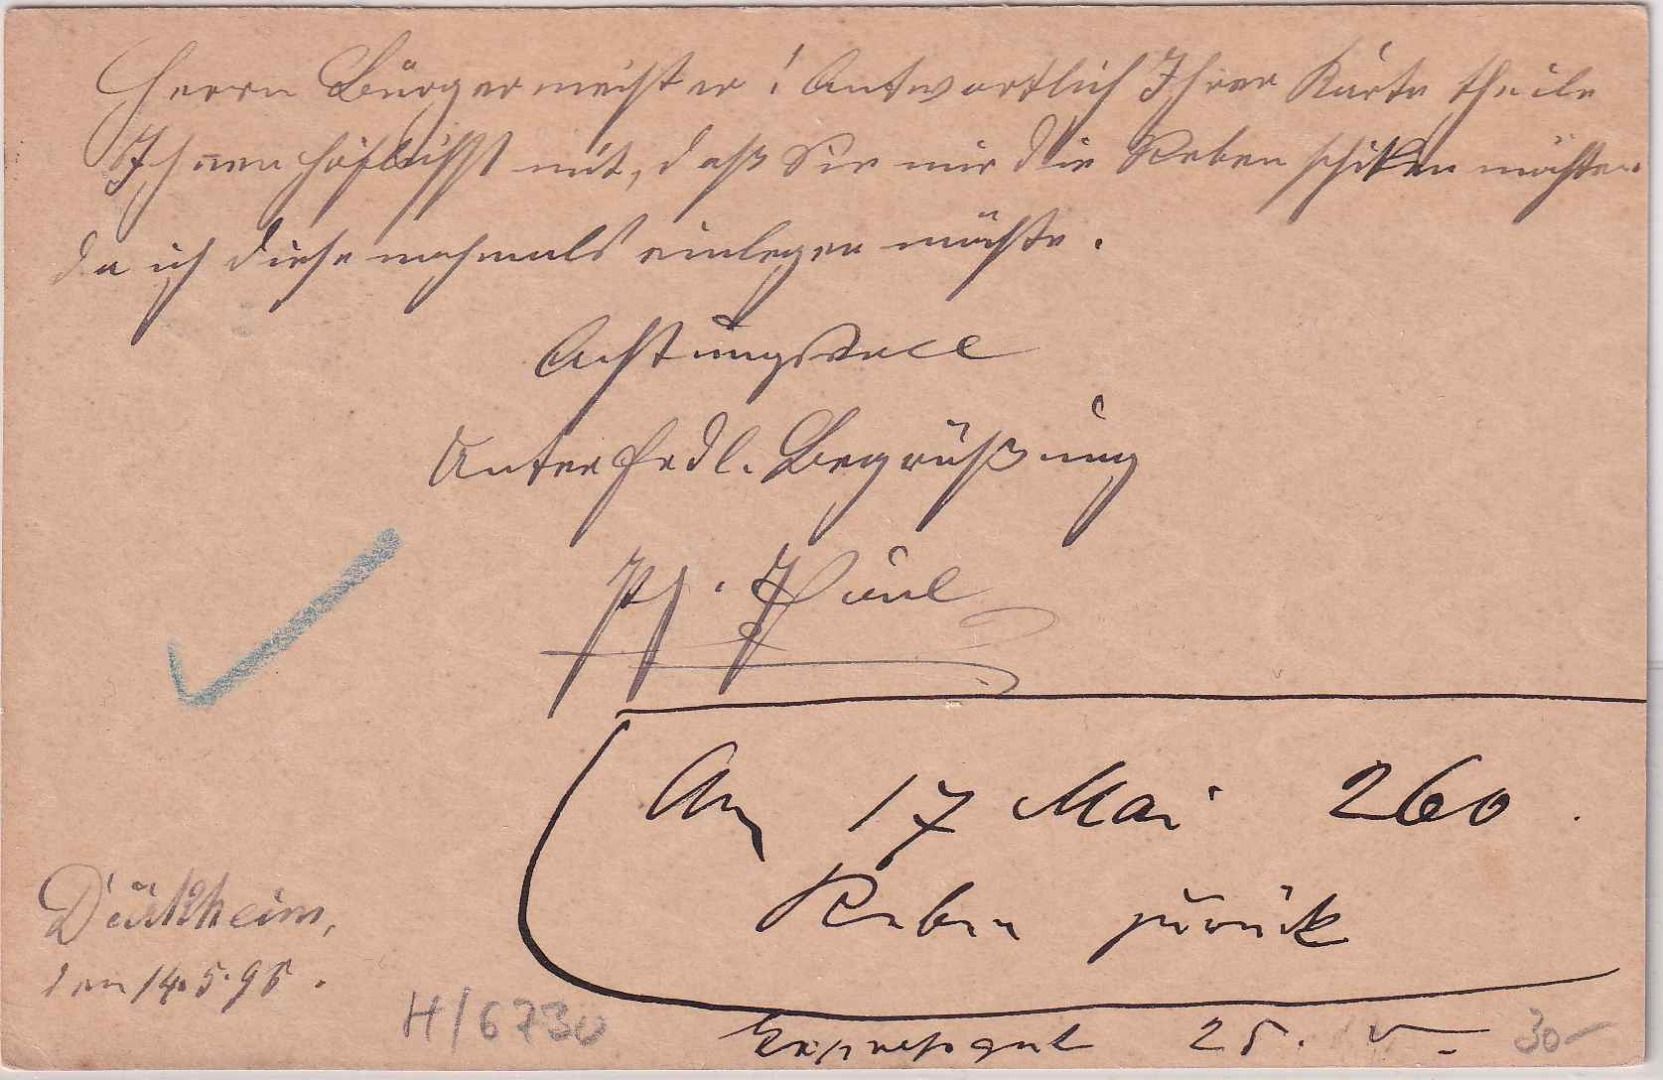 Herrn Bürgermeister! Antwortlich Ihrer Karte theile
Ihnen höflichst mit, daß Sie mir die Reben schiken möchten
da ich diese nochmals einlegen möchte.
Achtungsvoll
Unter frdl. Begrüßung
Ph.
Dürkheim,
den 14.5.95.
Am 17 Mai 260
Reben zurück
Expressgut 25. V.
H/6730
30-